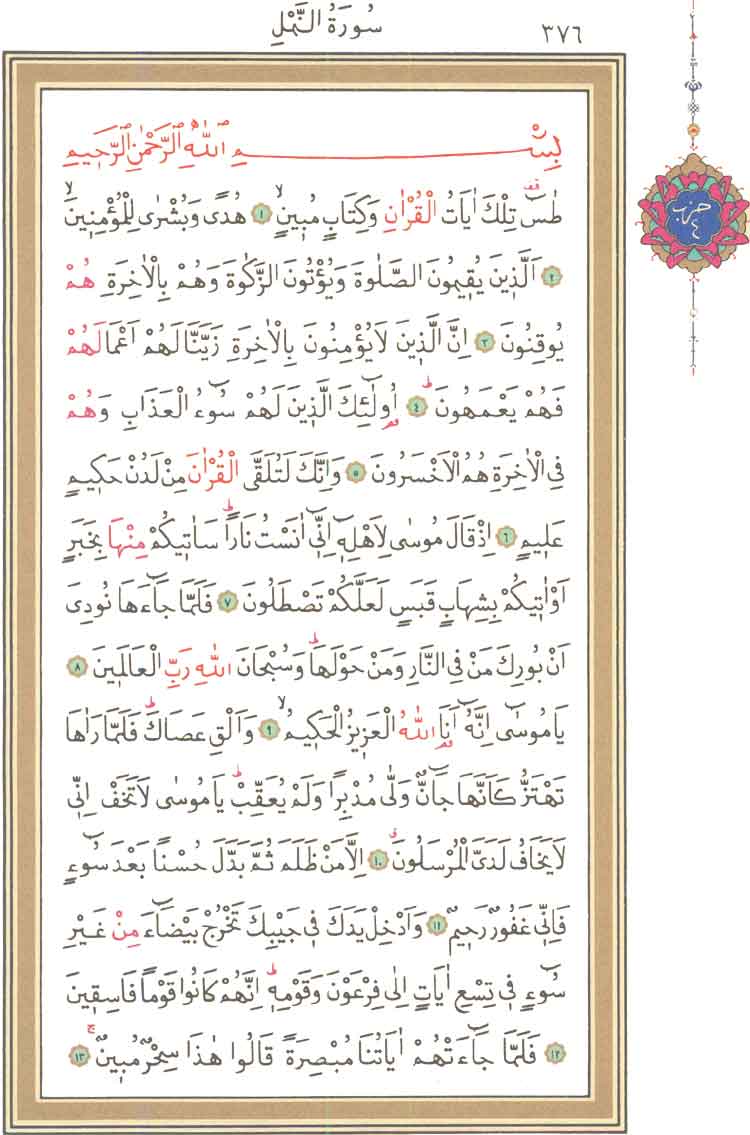 سُورَةُ النَّمْلِ
٣٧٦
بِسْمِ اللّٰهِ الرَّحْمٰنِ الرَّحِيمِ
طٰسٓ تِلْكَ اٰيَاتُ الْقُرْاٰنِ وَكِتَابٍ مُب۪ينٍۙ ١ هُدًى وَبُشْرٰى لِلْمُؤْمِن۪ينَۙ
٢ اَلَّذ۪ينَ يُق۪يمُونَ الصَّلٰوةَ وَيُؤْتُونَ الزَّكٰوةَ وَهُمْ بِالْاٰخِرَةِ هُمْ
يُوقِنُونَ ٣ اِنَّ الَّذ۪ينَ لَايُؤْمِنُونَ بِالْاٰخِرَةِ زَيَّنَّا لَهُمْ اَعْمَالَهُمْ
فَهُمْ يَعْمَهُونَۜ ٤ اُو۬لٰٓئِكَ الَّذ۪ينَ لَهُمْ سُٓوءُ الْعَذَابِ وَهُمْ
فِي الْاٰخِرَةِ هُمُ الْاَخْسَرُونَ ٥ وَاِنَّكَ لَتُلَقَّى الْقُرْاٰنَ مِنْ لَدُنْ حَك۪يمٍ
عَل۪يمٍ ٦ اِذْ قَالَ مُوسٰى لِاَهْلِه۪ٓ اِنّ۪ٓي اٰنَسْتُ نَاراًۜ سَاٰت۪يكُمْ مِنْهَا بِخَبَرٍ
اَوْاٰت۪يكُمْ بِشِهَابٍ قَبَسٍ لَعَلَّكُمْ تَصْطَلُونَ ٧ فَلَمَّا جَٓاءَهَا نُودِيَ
اَنْ بُورِكَ مَنْ فِي النَّارِ وَمَنْ حَوْلَهَاۜ وَسُبْحَانَ اللّٰهِ رَبِّ الْعَالَم۪ينَ ٨
يَا مُوسٰٓى اِنَّهُٓ اَنَا۬ اللّٰهُ الْعَز۪يزُ الْحَك۪يمُۙ ٩ وَاَلْقِ عَصَاكَۜ فَلَمَّا رَاٰهَا
تَهْتَزُّ كَاَنَّهَا جَٓانٌّ وَلّٰى مُدْبِراً وَلَمْ يُعَقِّبْۜ يَا مُوسٰى لَاتَخَفْ اِنّ۪ي
لَايَخَافُ لَدَيَّ الْمُرْسَلُونَۗ ١٠ اِلَّا مَنْ ظَلَمَ ثُمَّ بَدَّلَ حُسْناً بَعْدَ سُٓوءٍ
فَاِنّ۪ي غَفُورٌ رَح۪يمٌ ١١ وَاَدْخِلْ يَدَكَ ف۪ي جَيْبِكَ تَخْرُجْ بَيْضَٓاءَ مِنْ غَيْرِ
سُٓوءٍ ف۪ي تِسْعِ اٰيَاتٍ اِلٰى فِرْعَوْنَ وَقَوْمِه۪ۜ اِنَّهُمْ كَانُوا قَوْماً فَاسِق۪ينَ
١٢ فَلَمَّا جَٓاءَتْهُمْ اٰيَاتُنَا مُبْصِرَةً قَالُوا هٰذَا سِحْرٌ مُب۪ينٌۚ ١٣
حزب
٤